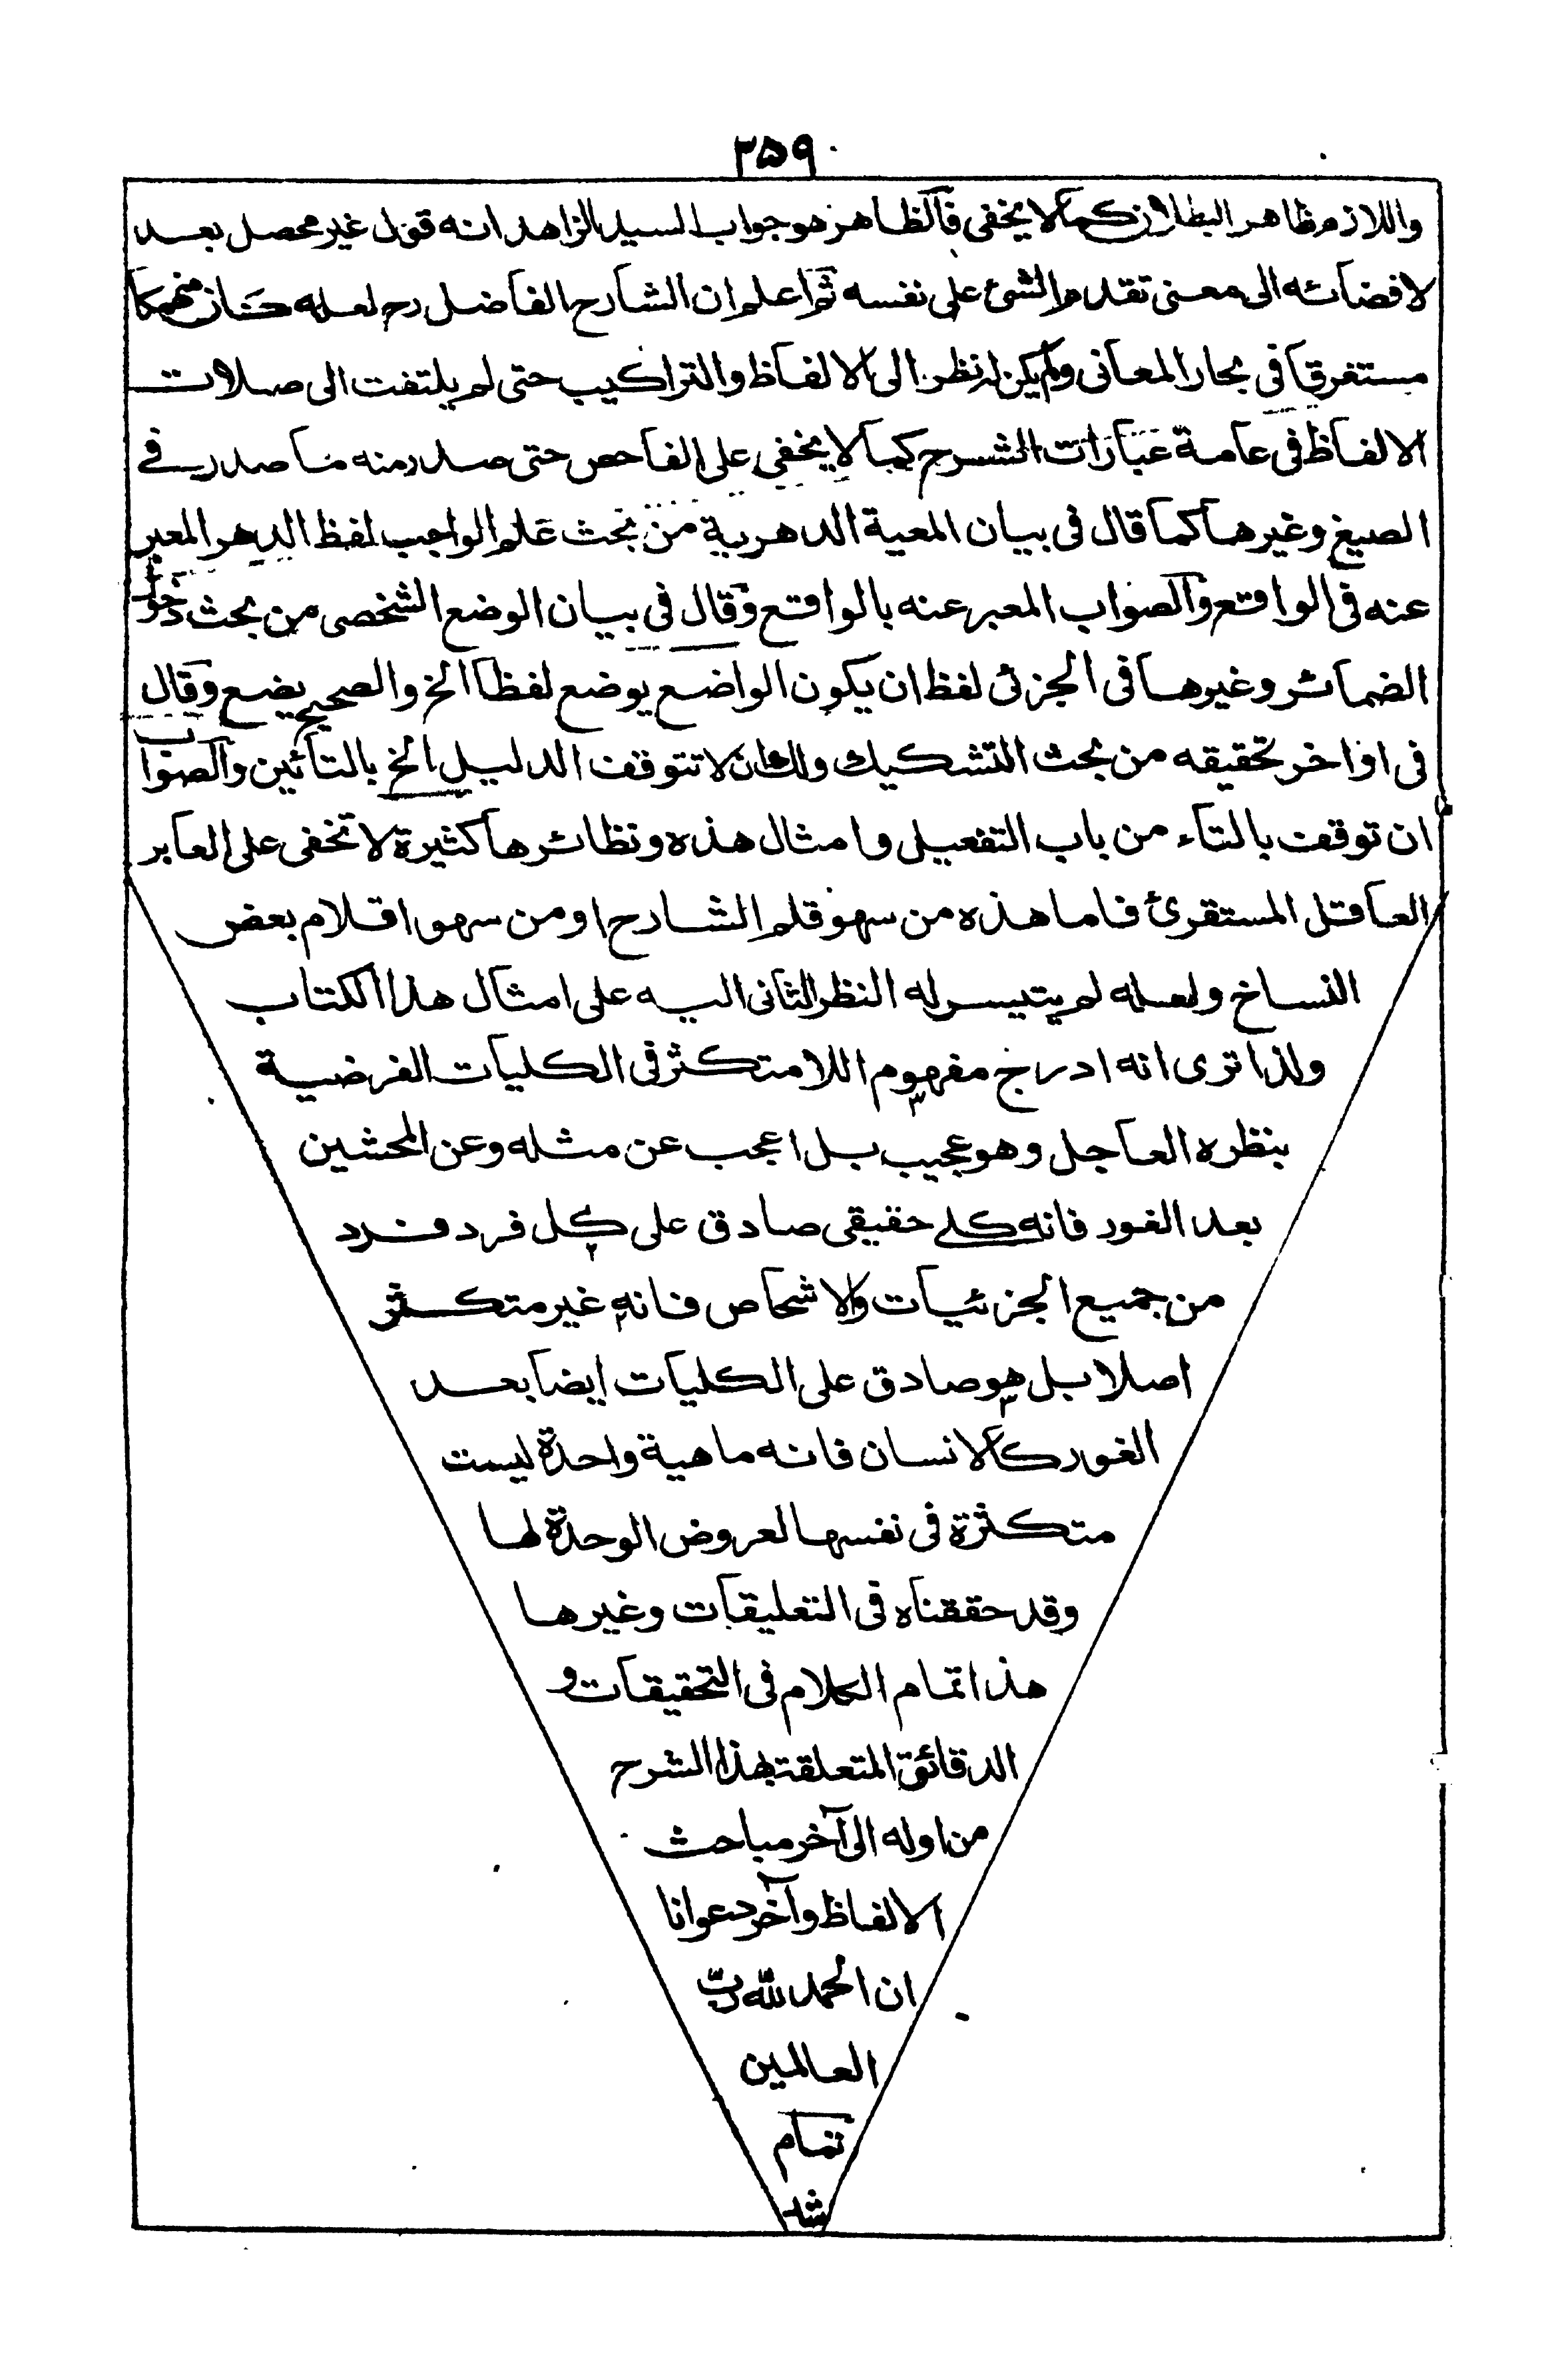 ٣٥٩
واللازم ظاهر البطلان كما لا يخفى فالظاهر هو جواب السيد الزاهد انه قول غير محصل بعد
لافضائه الى معنى تقدم الشئ على نفسه ثم اعلم ان الشارح الفاضل رح لعله كان منهمكا
مستغرقا فى بحار المعانى ولم يكن له نظر الى الالفاظ والتراكيب حتى لم يلتفت الى صلات
الالفاظ فى عامة عبارات الشرح كما لا يخفى على الفاحص حتى صدر منه ما صدر فے
الصيغ وغيرها كما قال فى بيان المعية الدهرية من بحث علم الواجب لفظ الدهر المعبر
عنه فى الواقع والصواب المعبر عنه بالواقع وقال فى بيان الوضع الشخصى من بحث دخول
الضمائر وغيرها فى الجزئى لفظ ان يكون الواضع يوضع لفظا الخ والصحيح يضع وقال
فى اواخر تحقيقه من بحث التشكيك والشان لا تتوقف الدليل الخ بالتائين والصواب
ان توقف بالتاء من باب التفعيل وامثال هذه ونظائرها كثيرة لا تخفى على العابر
العاقل المستقرئ فاما هذه من سهو قلم الشارح او من سهو اقلام بعض
النساخ ولعله لم يتيسر له النظر الثانى اليه على امثال هذا الكتاب
ولذا ترى انه ادرج مفهوم اللامتكثر فى الكليات الفرضية
بنظره العاجل وهو عجيب بل اعجب عن مثله وعن المحشين
بعد الغور فانه كلے حقيقى صادق على كل فرد فرد
من جميع الجزئيات والاشخاص فانه غير متكثر
اصلا بل هو صادق على الكليات ايضا بعد
الغور كالانسان فانه ماهية واحدة ليست
متكثرة فى نفسها لعروض الوحدة لها
وقد حققناه فى التعليقات وغيرها
هذا تمام الكلام فى التحقيقات و
الدقائق المتعلقة بهذا الشرح
من اوله الى آخر مباحث
الالفاظ وآخر دعوانا
ان الحمد لله ربّ
العالمين
تمام
شد